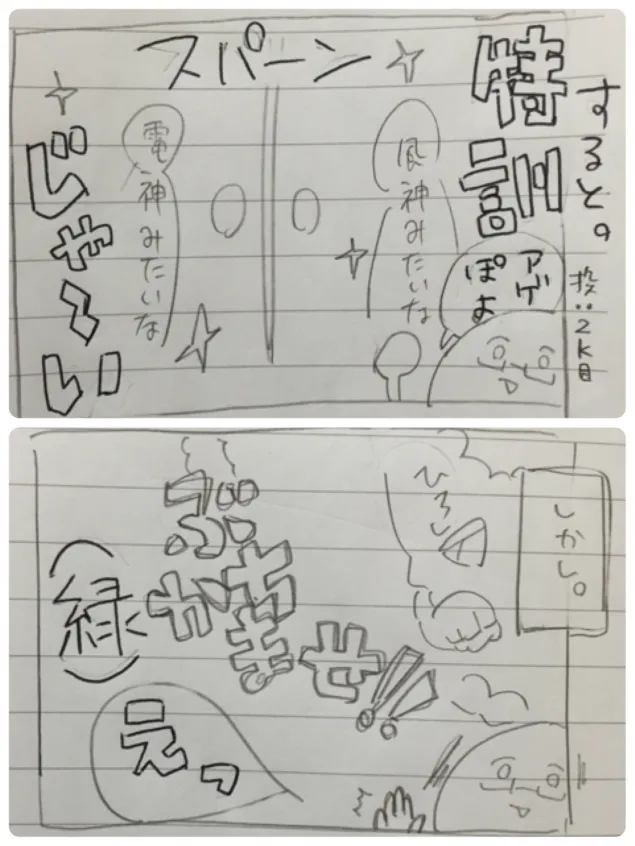 すると。
特訓
アゲ
ぽよ
スパーン
風神みたいな
電神みたいな
じゃ〜い
しかし。
ひろし
ぶちかませ!!
(緑)
えっ